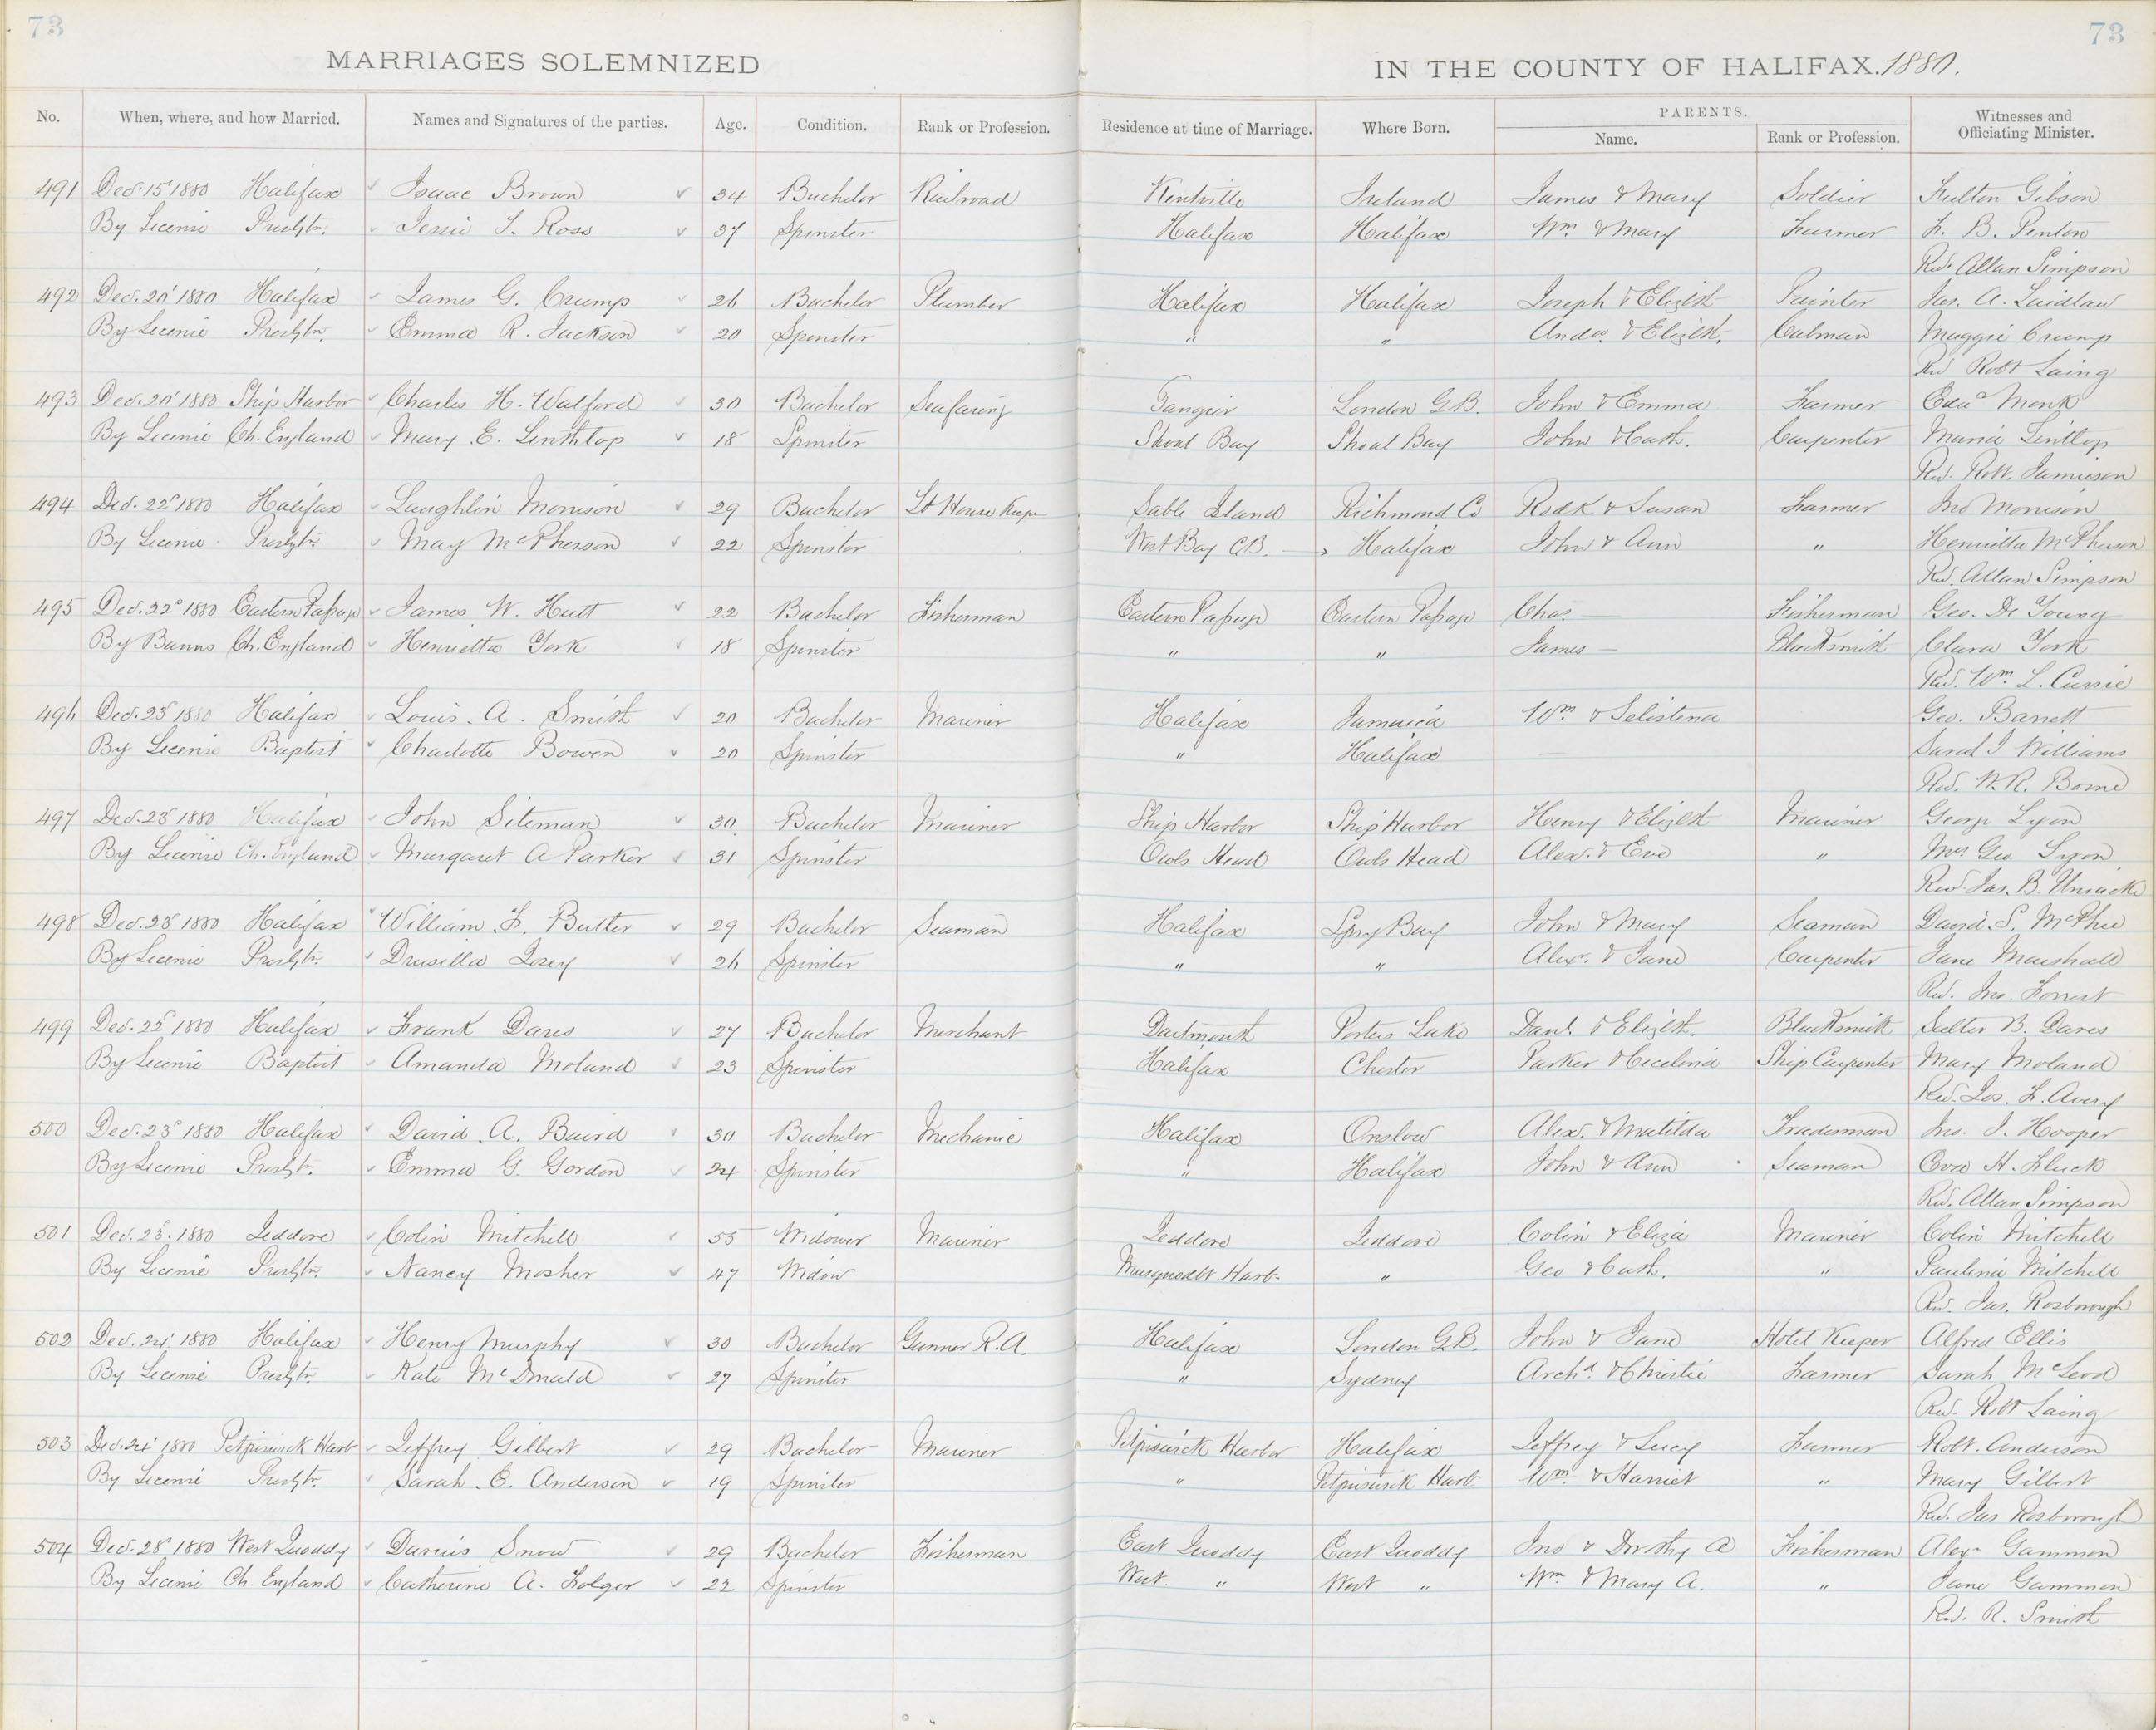 73
73
MARRIAGES SOLEMNIZED IN THE COUNTY OF HALIFAX. 1880.
No. When, where, and how Married. Names and Signatures of the parties. Age. Condition. Rank or Profession. Residence at time of Marriage. Where Born. PARENTS. Name. Rank or Profession. Witnesses and Officiating Minister.
491 Dec. 15 1880 Halifax Isaac Brown 34 Bachelor Railroad Kentville Ireland James & Mary Soldier Fulton Gibson
By License Presbtn. Jessie T. Ross 37 Spinster Halifax Halifax Wm. & Mary Farmer F. B. Penton
Rev. Allan Simpson
492 Dec. 20 1880 Halifax James G. Crump 26 Bachelor Plumber Halifax Halifax Joseph & Elizbt Painter Jas. A. Laidlaw
By License Presbtn. Emma R. Jackson 20 Spinster " " Andw. & Elizbt. Cabman Maggie Crump
Rev Robt Laing
493 Dec. 20 1880 Ship Harbor Charles H. Walford 30 Bachelor Seafaring Tangier London G.B. John & Emma Farmer Edwd Monk
By License Ch. England Mary E. Linthlop 18 Spinster Shoal Bay Shoal Bay John & Cath. Carpenter Maria Lintlop
Rev. Robt. Jamieson
494 Dec. 22 1880 Halifax Laughlin Morrison 29 Bachelor Lt House Keeper Sable Island Richmond Co Rodk & Susan Farmer Jno Morrison
By License Presbtn. May McPherson 22 Spinster West Bay C.B. Halifax John & Ann " Henrietta McPherson
Rev. Allan Simpson
495 Dec. 22 1880 Eastern Passage James W. Hutt 22 Bachelor Fisherman Eastern Passage Eastern Passage Chas. — Fisherman Geo. De Young
By Banns Ch. England Henrietta York 18 Spinster " " James — Blacksmith Clara York
Rev. Wm. L. Currie
496 Dec. 23 1880 Halifax Louis. A. Smith 20 Bachelor Mariner Halifax Jamaica Wm & Selestena Geo. Barrett
By License Baptist Charlotte Bowen 20 Spinster " Halifax — Sarah J Williams
Rev. W. R.
497 Dec. 23 1880 Halifax John Siteman 30 Bachelor Mariner Ship Harbor Ship Harbor Henry & Elizbt Mariner George Lyon
By License Ch. England Margaret A Parker 31 Spinster Owls Head Owls Head Alex. & Eve " Mrs Geo Lyon
Rev. Jas. B. Uniacke
498 Dec. 23 1880 Halifax William F. Butler 29 Bachelor Seaman Halifax Spry Bay John & Mary Seaman David. S. McPhee
By License Presbtn. Drusilla Josey 26 Spinster " " Alexr. & Jane Carpenter Jane Marshall
Rev. Jno. Forrest
499 Dec. 22 1880 Halifax Frank Dares 27 Bachelor Merchant Dartmouth Porters Lake Danl. & Elizbt. Blacksmith Salter B. Dares
By License Baptist Amanda Moland 23 Spinster Halifax Chester Parker & Cecelina Ship Carpenter Mary Moland
Rev. Jos. F. Avery
500 Dec. 23 1880 Halifax David A. Baird 30 Bachelor Mechanic Halifax Onslow Alex. & Matilda Tradesman Jno. J. Hooper
By License Presbtn. Emma G. Gordon 24 Spinster " Halifax John & Ann Seaman Eva H. Fluck
Rev. Allan Simpson
501 Dec. 23. 1880 Jeddore Colin Mitchell 55 Widower Mariner Jeddore Jeddore Colin & Eliza Mariner Colin Mitchell
By License Presbtn. Nancy Mosher 47 Widow Musquodbt Harb. " Geo & Cath. " Paulina Mitchell
Rev. Jas. Rosborough
502 Dec. 24 1880 Halifax Henry Murphy 30 Bachelor Gunner R.A. Halifax London G.B. John & Jane Hotel Keeper Alfred Ellis
By License Presbtn. Kate McDonald 27 Spinster " Sydney Archd. & Christie Farmer Sarah McLeod
Rev. Robt Laing
503 Dec. 24 1880 Petpiswick Harb Jeffrey Gilbert 29 Bachelor Mariner Petpiswick Harbor Halifax Jeffrey & Lucy Farmer Robt. Anderson
By License Presbtn. Sarah E. Anderson 19 Spinster " Petpiswick Harb. Wm. & Harriet " Mary Gilbert
Rev. Jas Rosborough
504 Dec. 28 1880 West Quoddy Darius Snow 29 Bachelor Fisherman East Quoddy East Quoddy Jno & Drothy A Fisherman Alexr Gammon
By License Ch. England Catherine A. Folger 22 Spinster West " West " Wm. & Mary A. " Jane Gammon
Rev. R. Smith